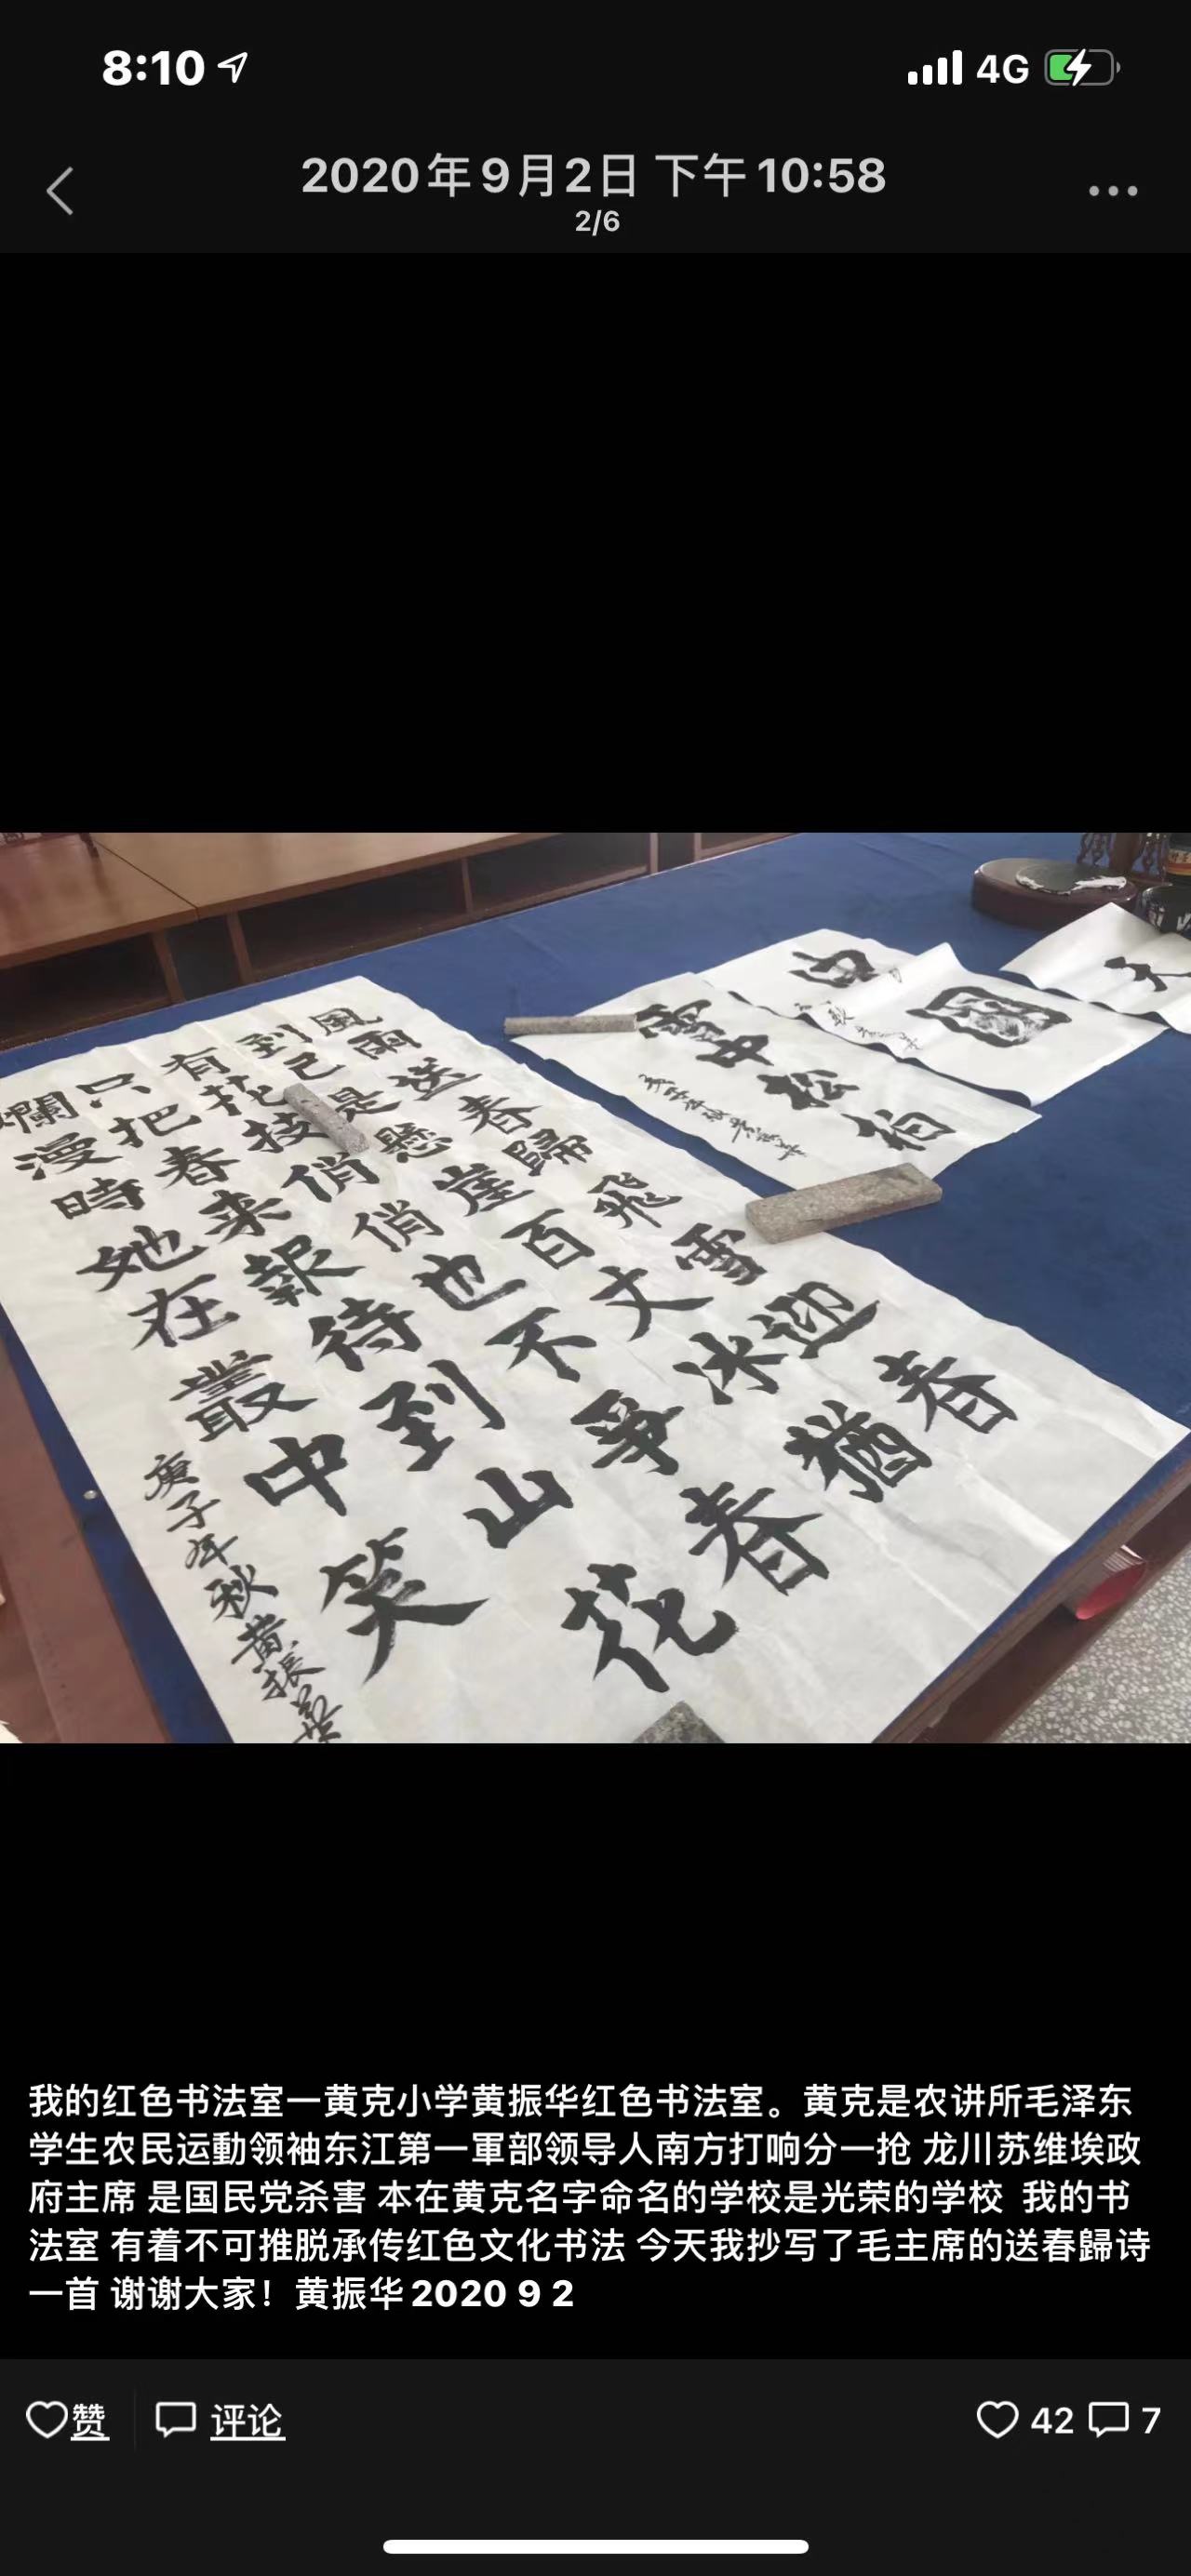 8:10
4G
2020年9月2日 下午10:58
2/6
風雨送春歸飛雪迎春
到已是懸崖百丈冰猶
有花技俏俏也不爭春
只把春来報待到山花
爛漫時她在叢中笑
庚子年秋黄振華
雪中松柏
我的红色书法室一黄克小学黄振华红色书法室。黄克是农讲所毛泽东
学生农民运動领袖东江第一軍部领导人南方打响分一抢 龙川苏维埃政
府主席 是国民党杀害 本在黄克名字命名的学校是光荣的学校 我的书
法室 有着不可推脱承传红色文化书法 今天我抄写了毛主席的送春歸诗
一首 谢谢大家！黄振华2020 9 2
赞 评论 42 7